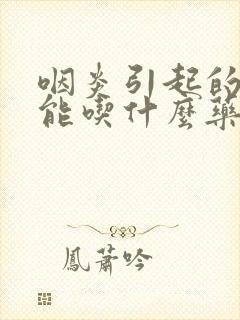 咽炎引起的
能喫什麼藥
鳳蕭吟